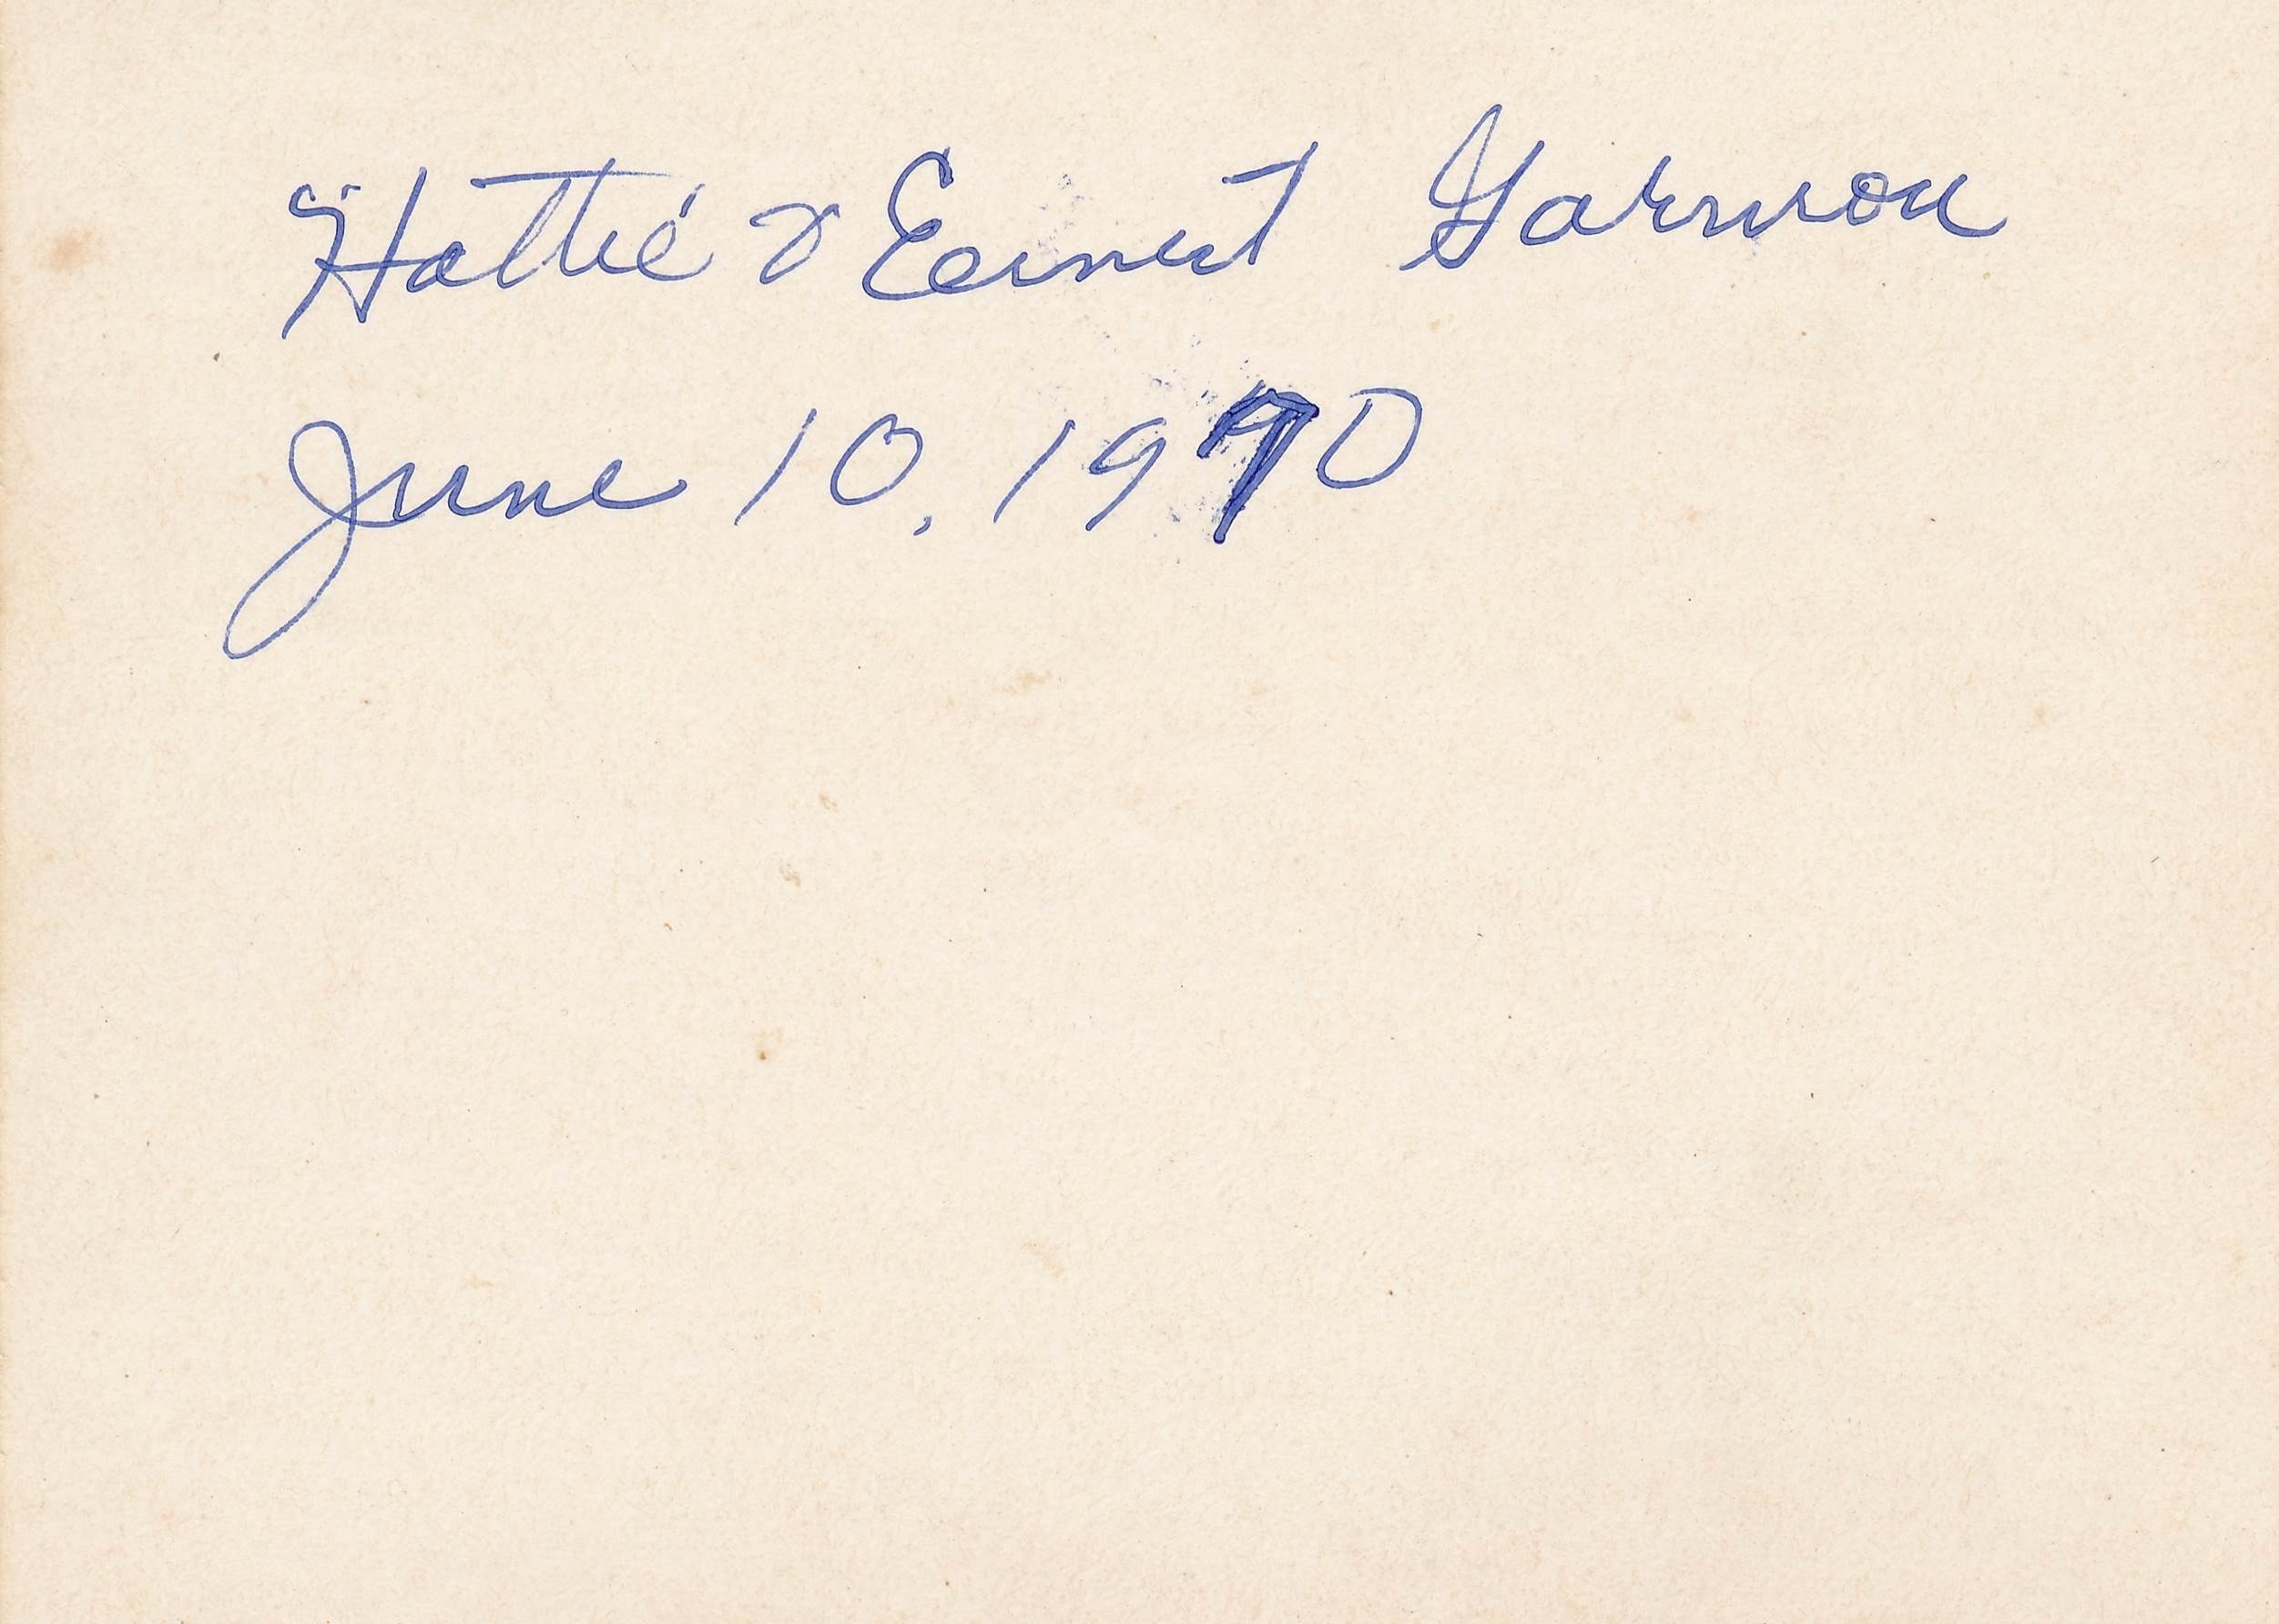 Hattie & Earnest Garmon
June 10, 1970